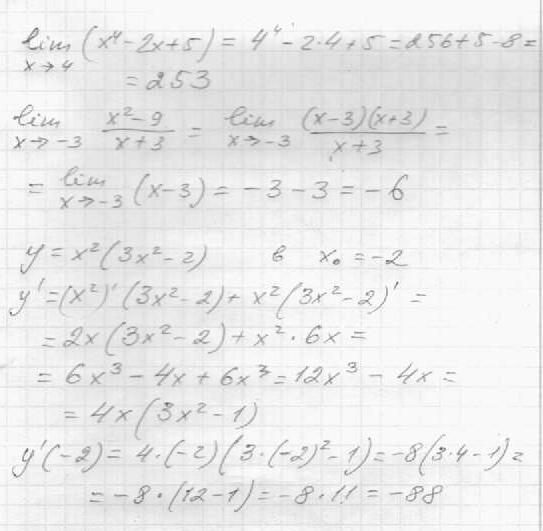 lim (x⁴ - 2x + 5) = 4⁴ - 2·4 + 5 = 256 + 5 - 8 =
x→4
= 253
lim x²-9 / x+3 = lim (x-3)(x+3) / x+3 =
x→-3 x→-3
= lim (x-3) = -3 - 3 = -6
x→-3
y = x²(3x² - 2) в x₀ = -2
y' = (x²)'(3x² - 2) + x²(3x² - 2)' =
= 2x(3x² - 2) + x² · 6x =
= 6x³ - 4x + 6x³ = 12x³ - 4x =
= 4x(3x² - 1)
y'(-2) = 4·(-2)(3·(-2)² - 1) = -8(3·4 - 1) =
= -8·(12 - 1) = -8·11 = -88